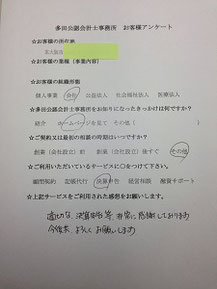 多田公認会計士事務所　お客様アンケート
☆お客様の所在地
名古屋市
☆お客様の業種（事業内容）
☆お客様の組織形態
個人事業　会社　公益法人　社会福祉法人　医療法人
☆多田公認会計士事務所をお知りになったきっかけは何ですか？
紹介　ホームページを見て　その他（　　　）
☆ご契約又は最初の相談の時期はいつですか？
創業（会社設立）前　創業（会社設立）後すぐ　その他
☆ご利用いただいているサービスに○をつけて下さい。
顧問契約　記帳代行　決算申告　経営相談　融資サポート
☆上記サービスをご利用された感想をお願いします。
適切な、決算申告等 非常に感謝しております
今後共 よろしくお願いします